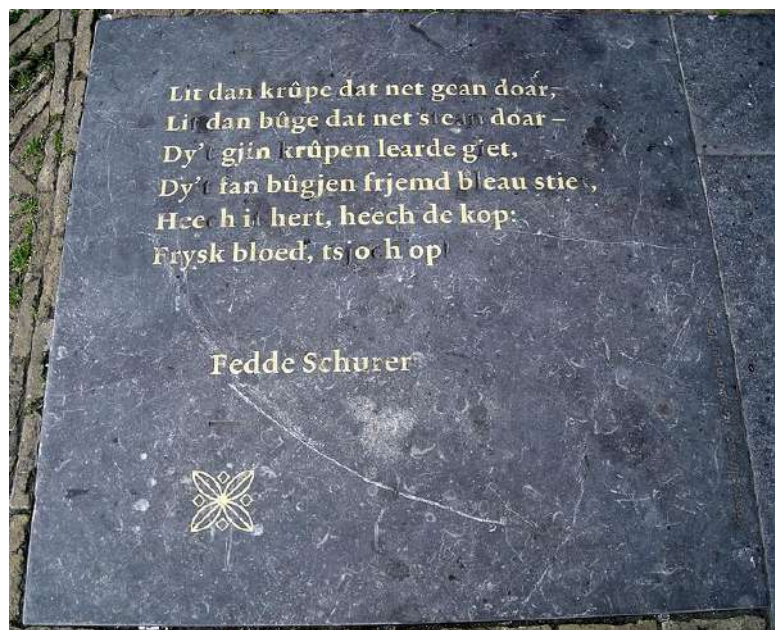 Lit dan krûpe dat net gean doar,
Lit dan bûge dat net stean doar –
Dy't gjin krûpen learde giet,
Dy't fan bûgjen frjemd bleau stiet,
Heech it hert, heech de kop:
Frysk bloed, tsjoch op
Fedde Schurer